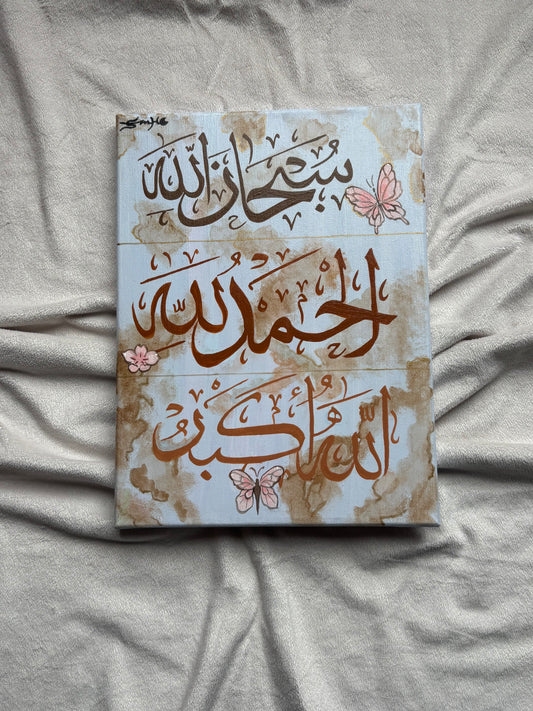 سُبْحَانَ اللّٰه
الْحَمْدُ لِلّٰهِ
اللّٰهُ أَكْبَرُ